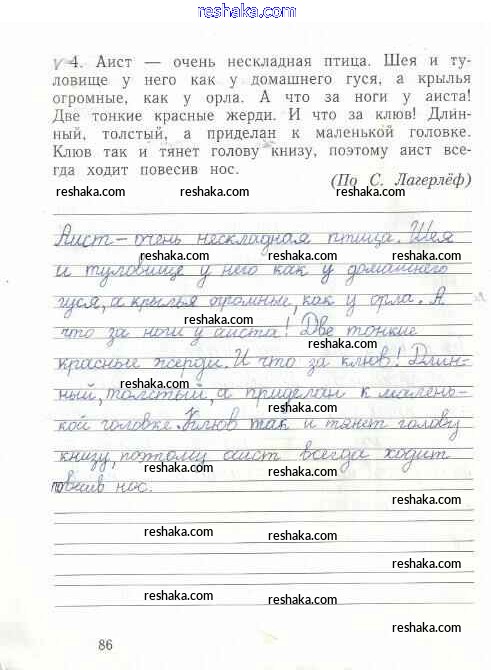 reshaka.com
4. Аист — очень нескладная птица. Шея и ту-
ловище у него как у домашнего гуся, а крылья
огромные, как у орла. А что за ноги у аиста!
Две тонкие красные жерди. И что за клюв! Длин-
ный, толстый, а приделан к маленькой головке.
Клюв так и тянет голову книзу, поэтому аист все-
гда ходит повесив нос.
(По С. Лагерлёф)
reshaka.com reshaka.com
reshaka.com
Аист – очень нескладная птица. Шея
reshaka.com reshaka.com
и туловище у него как у домашнего
reshaka.com
гуся, а крылья огромные, как у орла. А
reshaka.com reshaka.com
что за ноги у аиста! Две тонкие
reshaka.com
красные жерди. И что за клюв! Длин-
reshaka.com
ный, толстый, а приделан к малень-
reshaka.com
кой головке. Клюв так и тянет голову
reshaka.com reshaka.com
книзу, поэтому аист всегда ходит
reshaka.com
повесив нос.
reshaka.com
reshaka.com
reshaka.com
reshaka.com
reshaka.com
reshaka.com
reshaka.com
reshaka.com
86